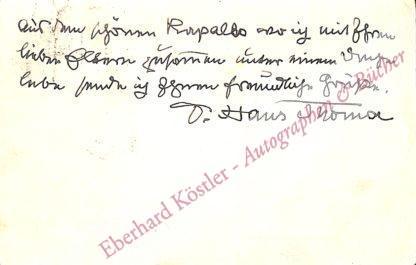 Aus dem schönen Rapallo wo ich mit Ihren
lieben Eltern zusammen unter einem
lebe sende ich Ihnen freundliche Grüße.
Hans Thoma
Eberhard Köstler - Autographen & Bücher